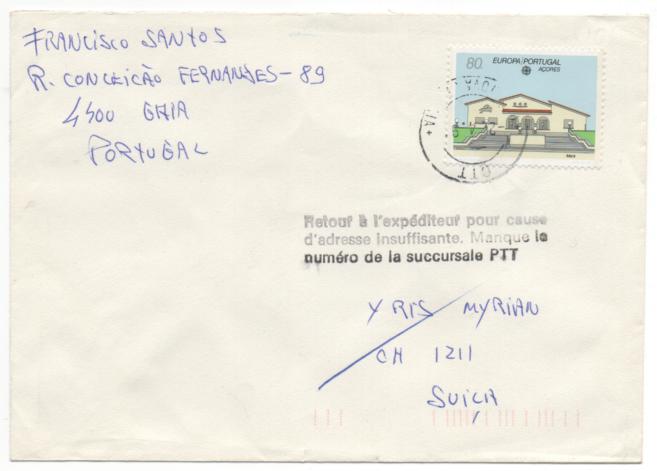 FRANCISCO SANTOS
R. CONCEIÇÃO FERNANDES-89
4400 GAIA
PORTUGAL
80.
EUROPA/PORTUGAL
AÇORES
CTT
Retour à l'expéditeur pour cause
d'adresse insuffisante. Manque le
numéro de la succursale PTT
YRIS MYRIAN
CH 1211
SUIÇA